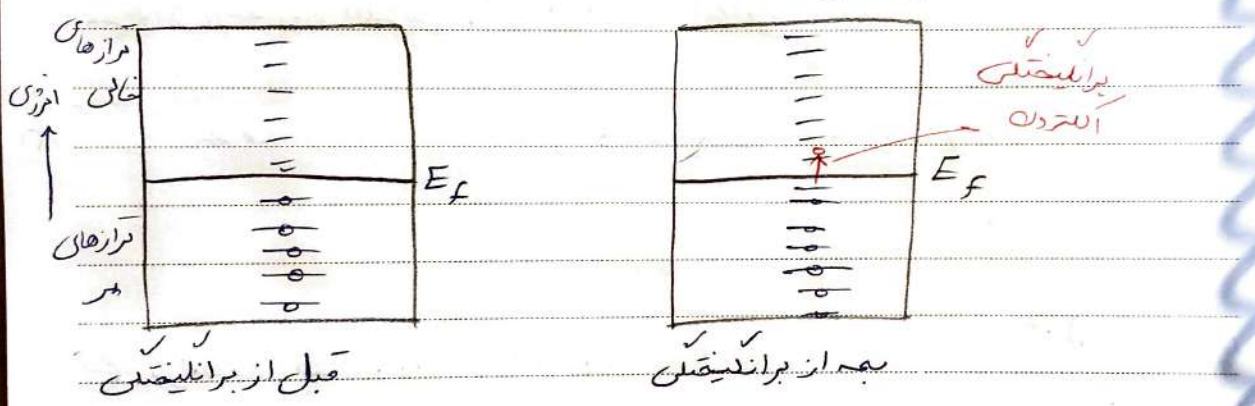 ترازهای
خالی
انرژی
E_f
ترازهای
پر
قبل از برانگیختگی
برانگیختگی
الکترون
E_f
بعد از برانگیختگی